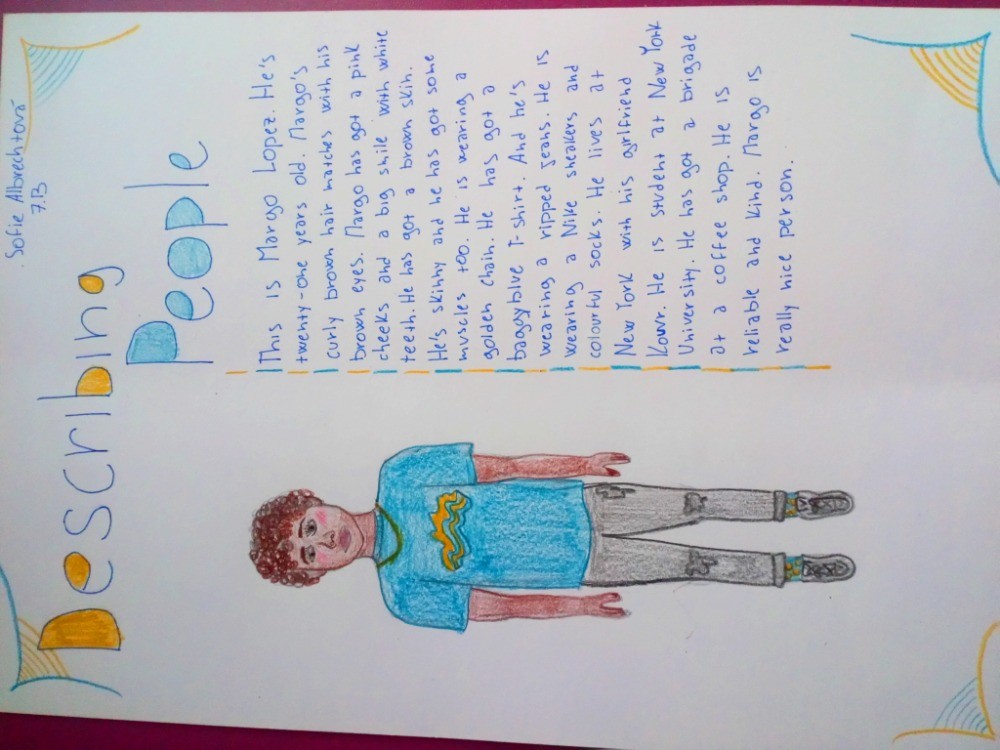 Sofie Albrechtová
7.B
Describing
People
This is Margo Lopez. He's
twenty-one years old. Margo's
curly brown hair matches with his
brown eyes. Margo has got a pink
cheeks and a big smile with white
teeth. He has got a brown skin.
He's skinny and he has got some
muscles too. He is wearing a
golden chain. He has got a
baggy blue T-shirt. And he's
wearing a ripped jeans. He is
wearing a Nike sneakers and
colourful socks. He lives at
New York with his girlfriend
Kouvr. He is student at New York
University. He has got a brigade
at a coffee shop. He is
reliable and kind. Margo is
really nice person.